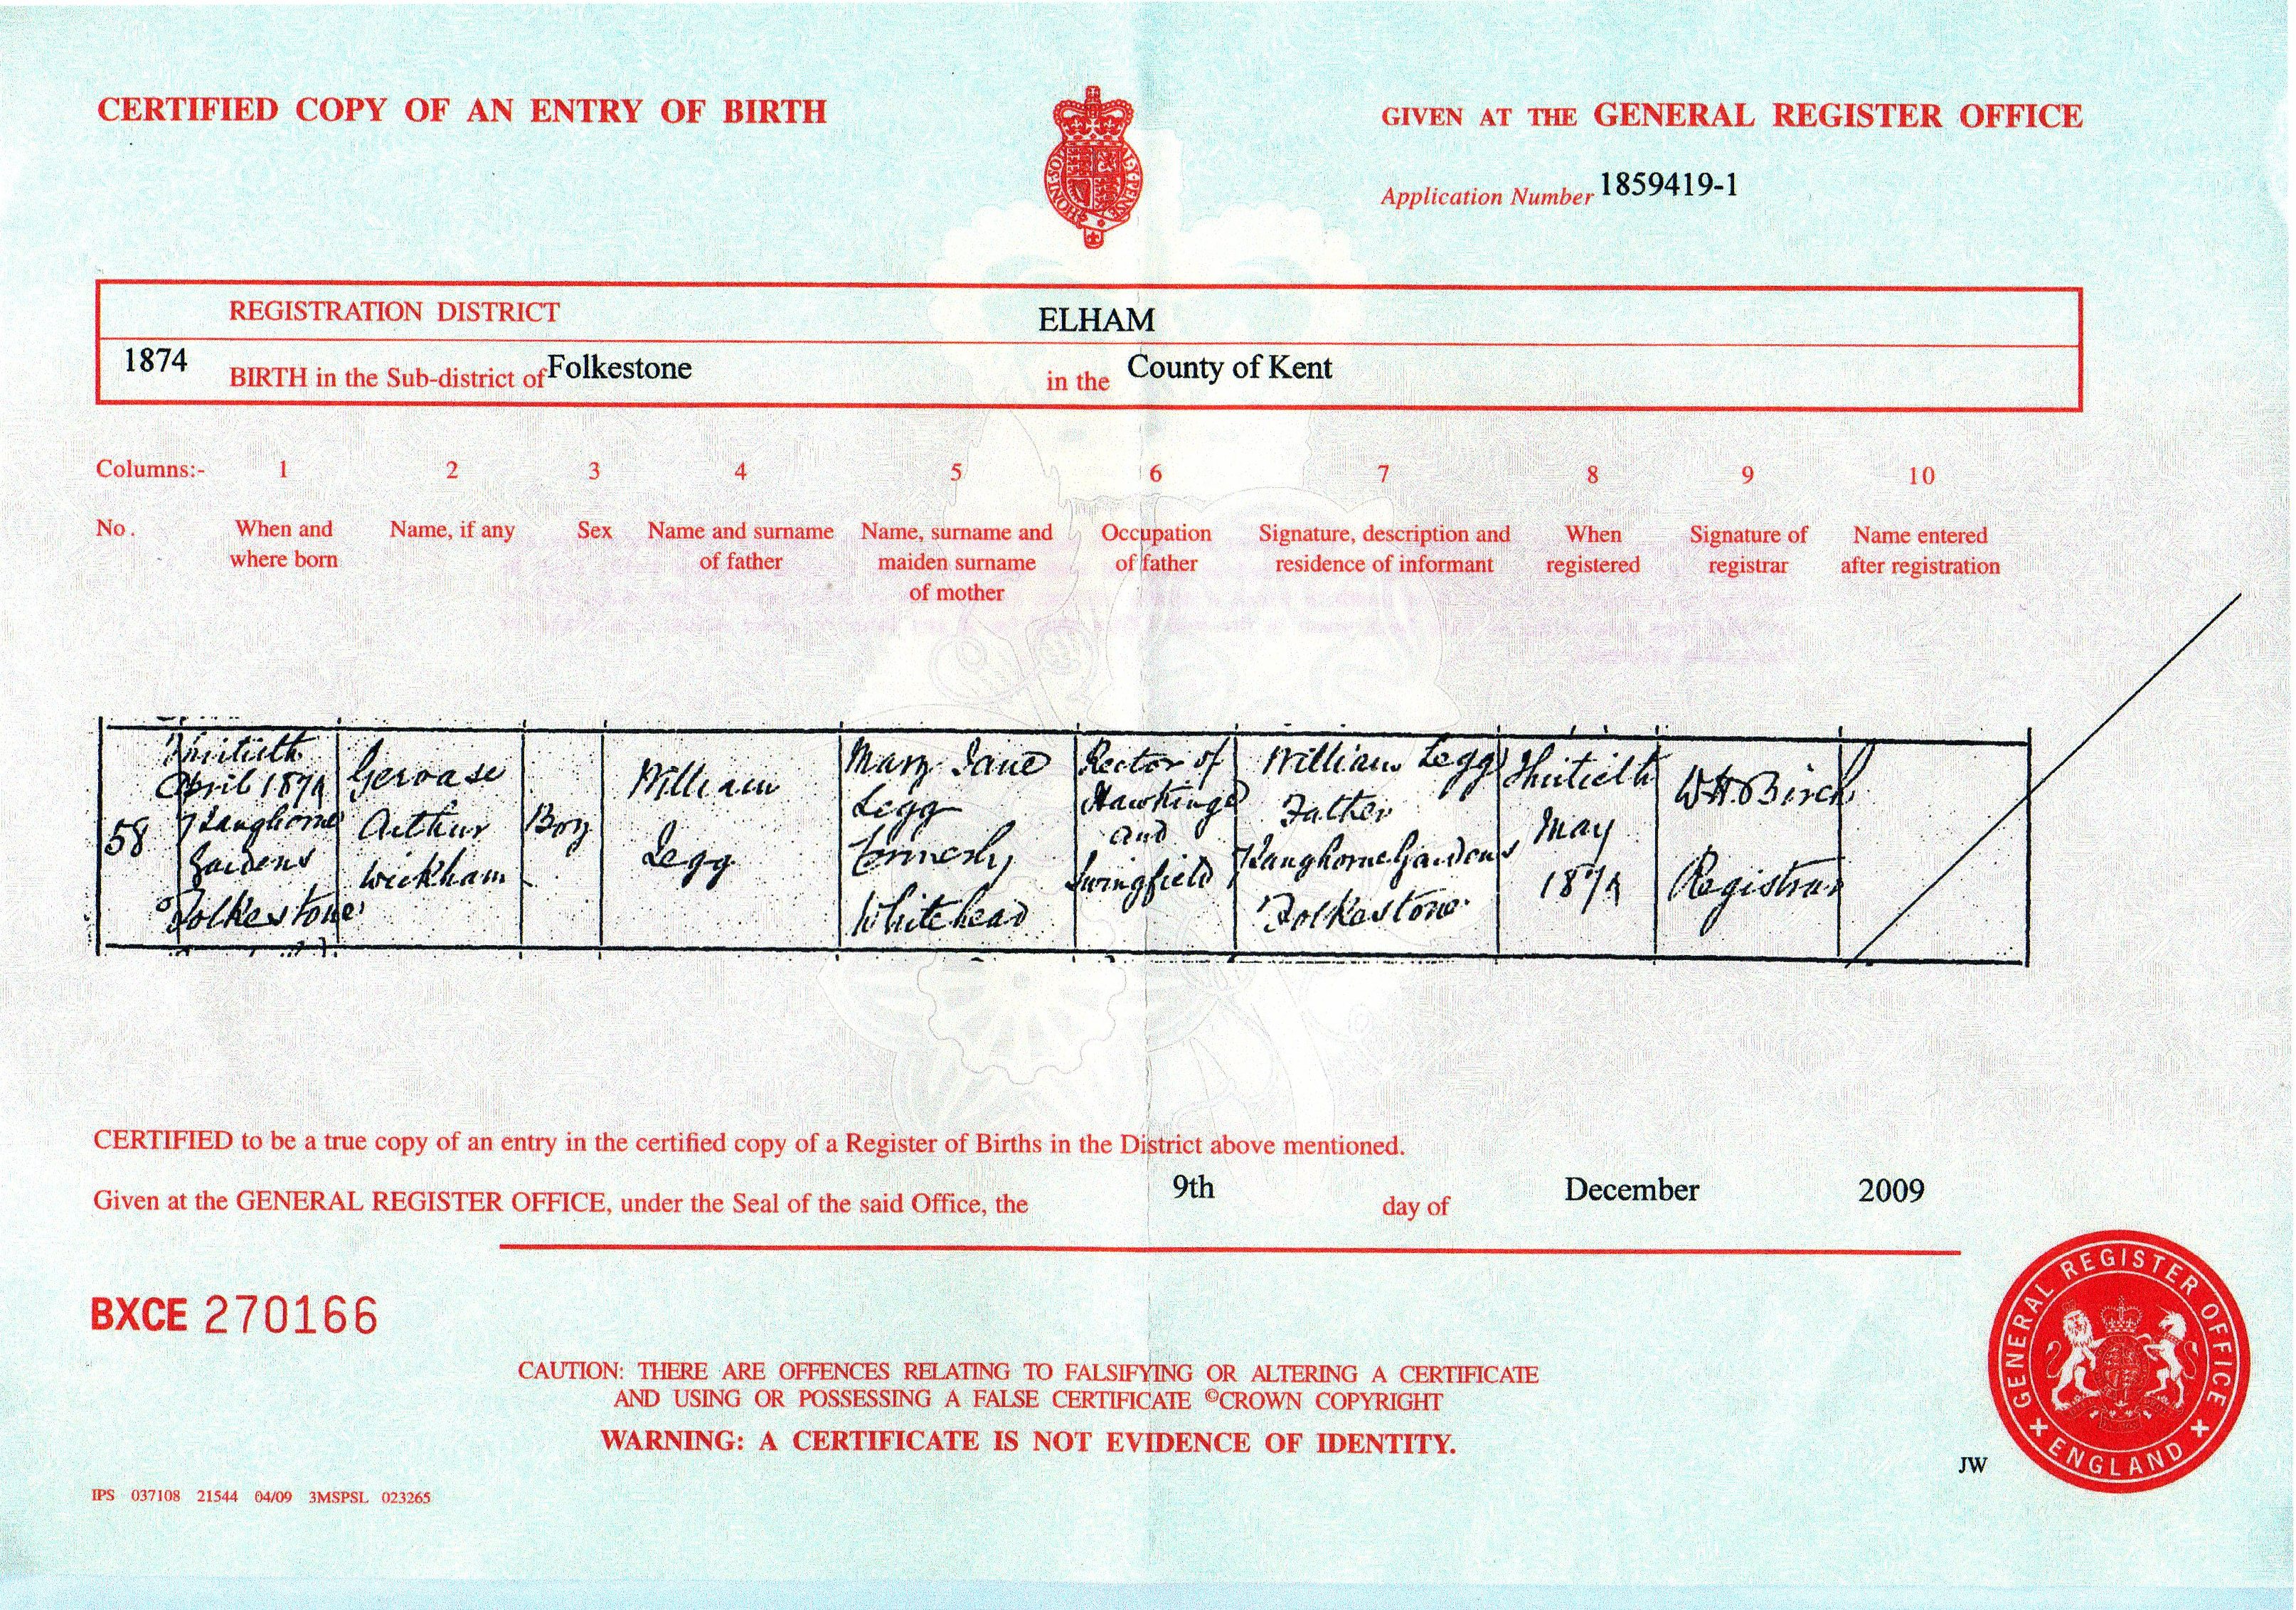 CERTIFIED COPY OF AN ENTRY OF BIRTH
GIVEN AT THE GENERAL REGISTER OFFICE
Application Number 1859419-1
REGISTRATION DISTRICT ELHAM
1874 BIRTH in the Sub-district of Folkestone in the County of Kent
Columns:- 1 2 3 4 5 6 7 8 9 10
No. When and where born
Name, if any
Sex
Name and surname of father
Name, surname and maiden surname of mother
Occupation of father
Signature, description and residence of informant
When registered
Signature of registrar
Name entered after registration
58
Thirtieth
April 1874
7 Langhorne
Gardens
Folkestone
Gervase
Arthur
Wickham
Boy
William
Legg
Mary Jane
Legg
formerly
Whitehead
Rector of
Hawkinge
and
Swingfield
William Legg
Father
7 Langhorne Gardens
Folkestone
Thirtieth
May
1874
W.H. Birch
Registrar
CERTIFIED to be a true copy of an entry in the certified copy of a Register of Births in the District above mentioned.
Given at the GENERAL REGISTER OFFICE, under the Seal of the said Office, the 9th day of December 2009
BXCE 270166
CAUTION: THERE ARE OFFENCES RELATING TO FALSIFYING OR ALTERING A CERTIFICATE
AND USING OR POSSESSING A FALSE CERTIFICATE ©CROWN COPYRIGHT
WARNING: A CERTIFICATE IS NOT EVIDENCE OF IDENTITY.
GENERAL REGISTER OFFICE
ENGLAND
JW
IPS 037108 21544 04/09 3MSPSL 023265